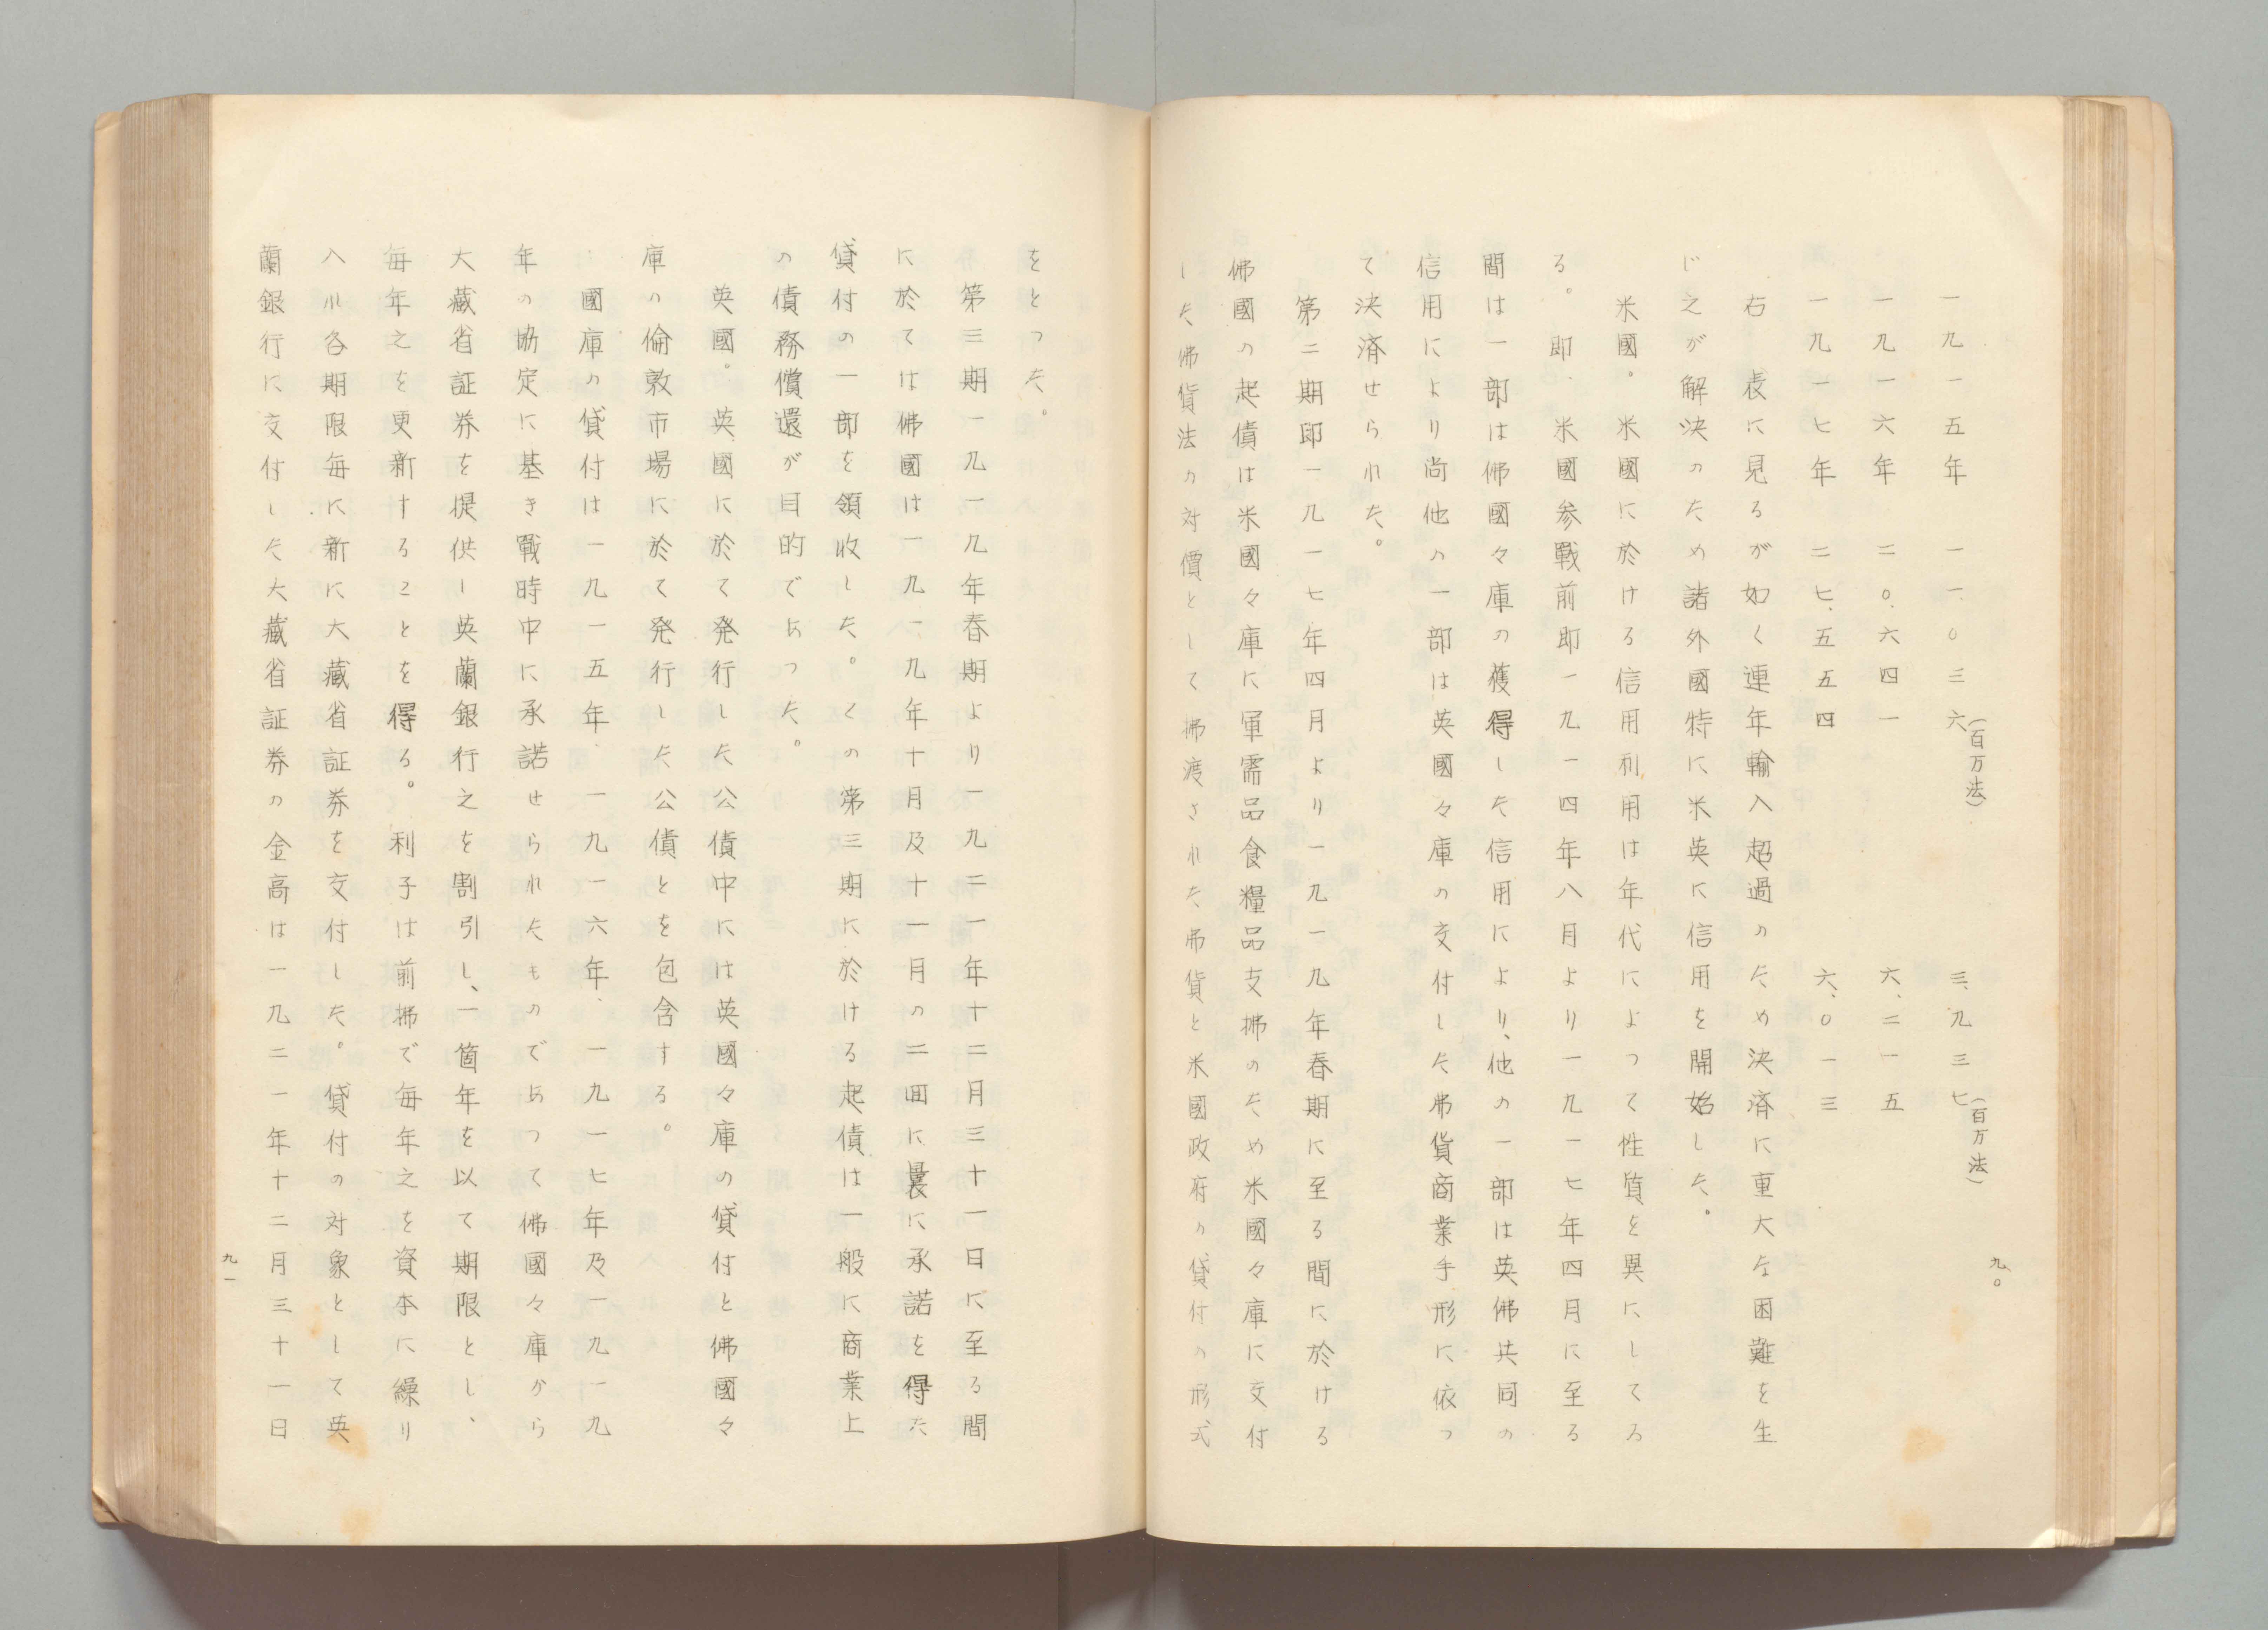 九〇
一九一五年　一一、〇三六(百万法)　三、九三七(百万法)
一九一六年　二〇、六四一　六、二一五
一九一七年　二七、五五四　六、〇一三
右　表に見るが如く連年輸入超過のため決済に重大な困難を生
じ之が解決のため諸外國特に米英に信用を開始した。
米國。米國に於ける信用利用は年代によつて性質を異にしてゐ
る。即、米國参戰前即一九一四年八月より一九一七年四月に至る
間は一部は佛國々庫の獲得した信用により、他の一部は英佛共同の
信用により尚他の一部は英國々庫の交付した弗貨商業手形に依つ
て決済せられた。
第二期即一九一七年四月より一九一九年春期に至る間に於ける
佛國の起債は米國々庫に軍需品食糧品支拂のため米國々庫に交付
した佛貨法の対價として拂渡された弗貨と米國政府の貸付の形式
をとつた。
第三期一九一九年春期より一九二一年十二月三十一日に至る間
に於ては佛國は一九一九年十月及十一月の二回に曩に承諾を得た
貸付の一部を領收した。この第三期に於ける起債は一般に商業上
の債務償還が目的であつた。
英國。英國に於て発行した公債中には英國々庫の貸付と佛國々
庫の倫敦市場に於て発行した公債とを包含する。
國庫の貸付は一九一五年、一九一六年、一九一七年及一九一九
年の協定に基き戰時中に承諾せられたものであつて佛國々庫から
大藏省証券を提供し英蘭銀行之を割引し、一箇年を以て期限とし、
毎年之を更新することを得る。利子は前拂で毎年之を資本に繰り
入れ各期限毎に新に大藏省証券を交付した。貸付の対象として英
蘭銀行に交付した大藏省証券の金高は一九二一年十二月三十一日
九一